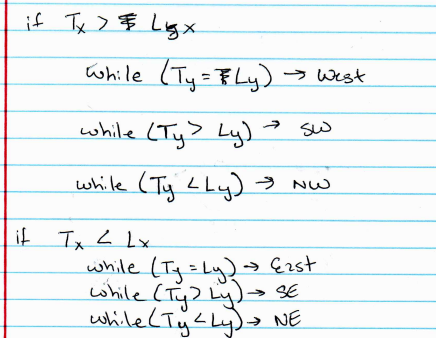 if Tx > Lx
while (Ty = Ly) → West
while (Ty > Ly) → SW
while (Ty < Ly) → NW
if Tx < Lx
while (Ty = Ly) → East
while (Ty > Ly) → SE
while (Ty < Ly) → NE